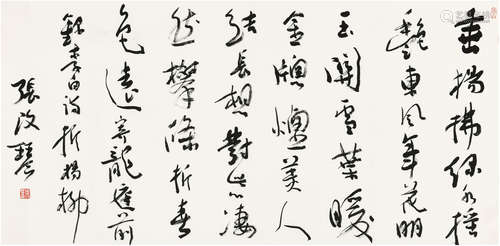 垂揚拂绿水摇
艷東風年花明
玉關雪葉暖
金牕煙美人
結長想對此心凄
然攀條折春
色遠寄龍庭前
李白诗折楊柳
張改琴